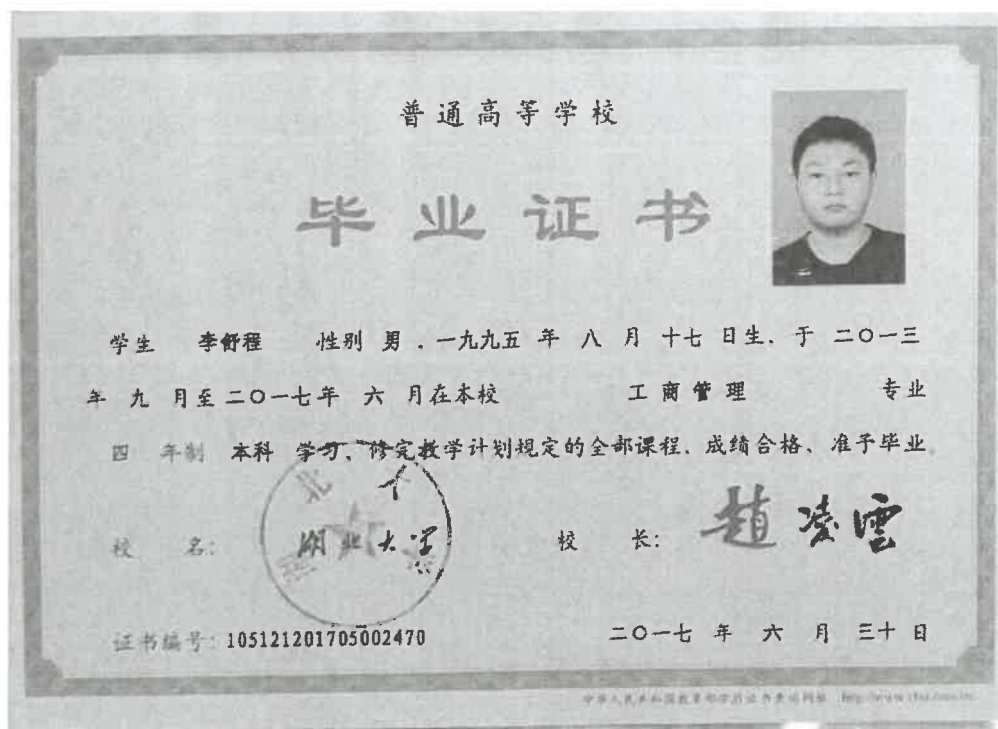 普通高等学校
毕业证书
学生 李舒程 性别 男 ，一九九五 年 八 月 十七 日生，于 二〇一三
年 九 月至 二〇一七 年 六 月在本校 工商管理 专业
四 年制 本科 学习，修完教学计划规定的全部课程，成绩合格，准予毕业。
校 名： 湖北大学 校 长： 趙凌雲
证书编号：105121201705002470 二〇一七 年 六 月 三十 日
中华人民共和国教育部学历证书查询网址